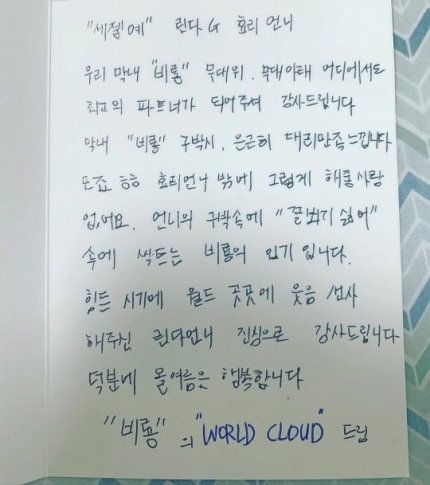 "세젤예" 린다G 효리 언니
우리 막내 "비룡" 무대위, 무대아래 어디에서도
최고의 파트너가 되어주셔 감사드립니다
막내 "비룡" 구박시, 은근히 대리만족느낍니다
또죠 ㅎㅎ 효리언니 밖에 그렇게 해줄사람
없어요. 언니의 구박속에 "꼴뵈기싫어"
속에 싹트는 비룡의 인기 입니다.
힘든 시기에 월드 곳곳에 웃음 선사
해주신 린다언니 진심으로 감사드립니다
덕분에 올여름은 행복합니다
"비룡" 의 "WORLD CLOUD" 드림